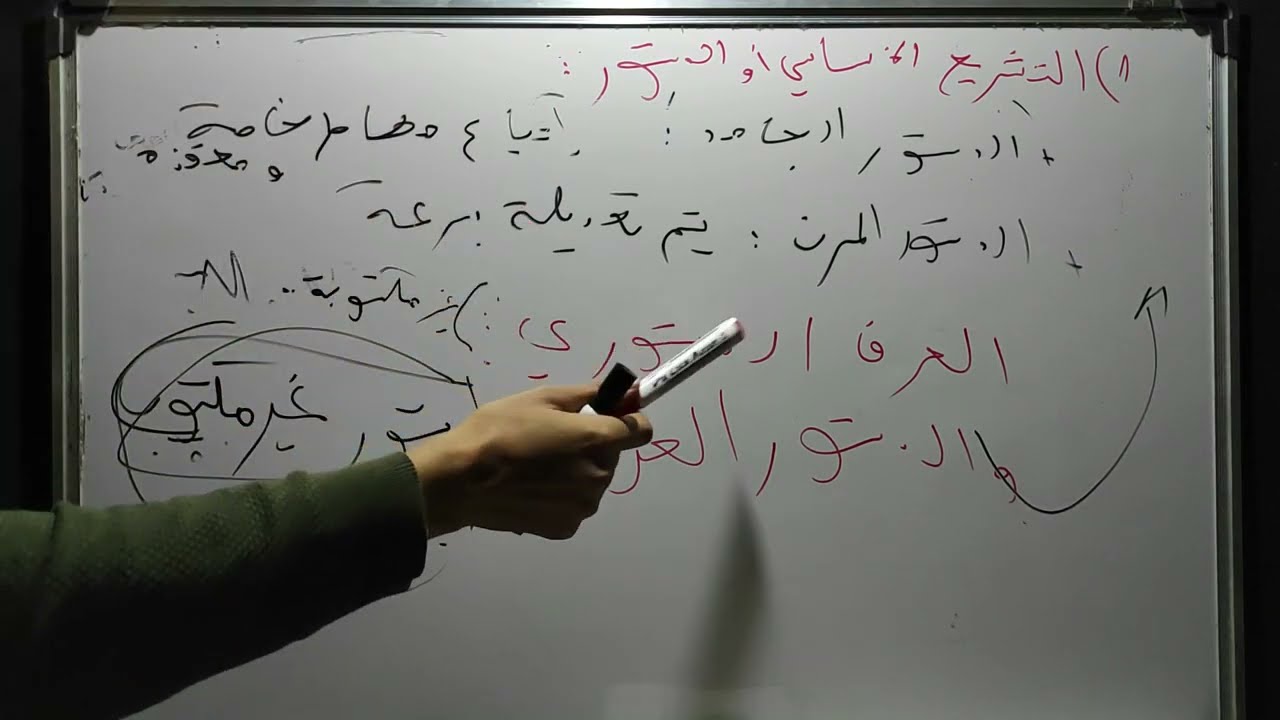 1) التشريع الأساسي أو الدستور :
+ الدستور الجامد : إتباع مهام خاصة
و معقدة
+ الدستور المرن : يتم تعديلة بسرعة
العرف الدستوري : غير مكتوبة..
و الدستور العر
غير مكتوب